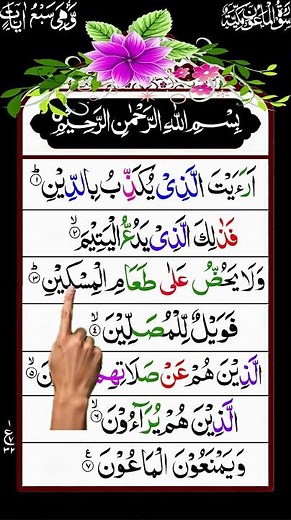 سُوْرَةُ الْمَاعُوْنِ مَكِّيَّةٌ وَّهِيَ سَبْعُ اٰيَاتٍ
بِسْمِ اللّٰهِ الرَّحْمٰنِ الرَّحِيْمِ
اَرَءَيْتَ الَّذِىْ يُكَذِّبُ بِالدِّيْنِ ؕ ۱
فَذٰلِكَ الَّذِىْ يَدُعُّ الْيَتِيْمَ ۙ ۲
وَلَا يَحُضُّ عَلٰى طَعَامِ الْمِسْكِيْنِ ؕ ۳
فَوَيْلٌ لِّلْمُصَلِّيْنَ ۙ ۴
الَّذِيْنَ هُمْ عَنْ صَلَاتِهِمْ نَ ۙ ۵
الَّذِيْنَ هُمْ يُرَآءُوْنَ ۙ ۶
وَيَمْنَعُوْنَ الْمَاعُوْنَ ۷